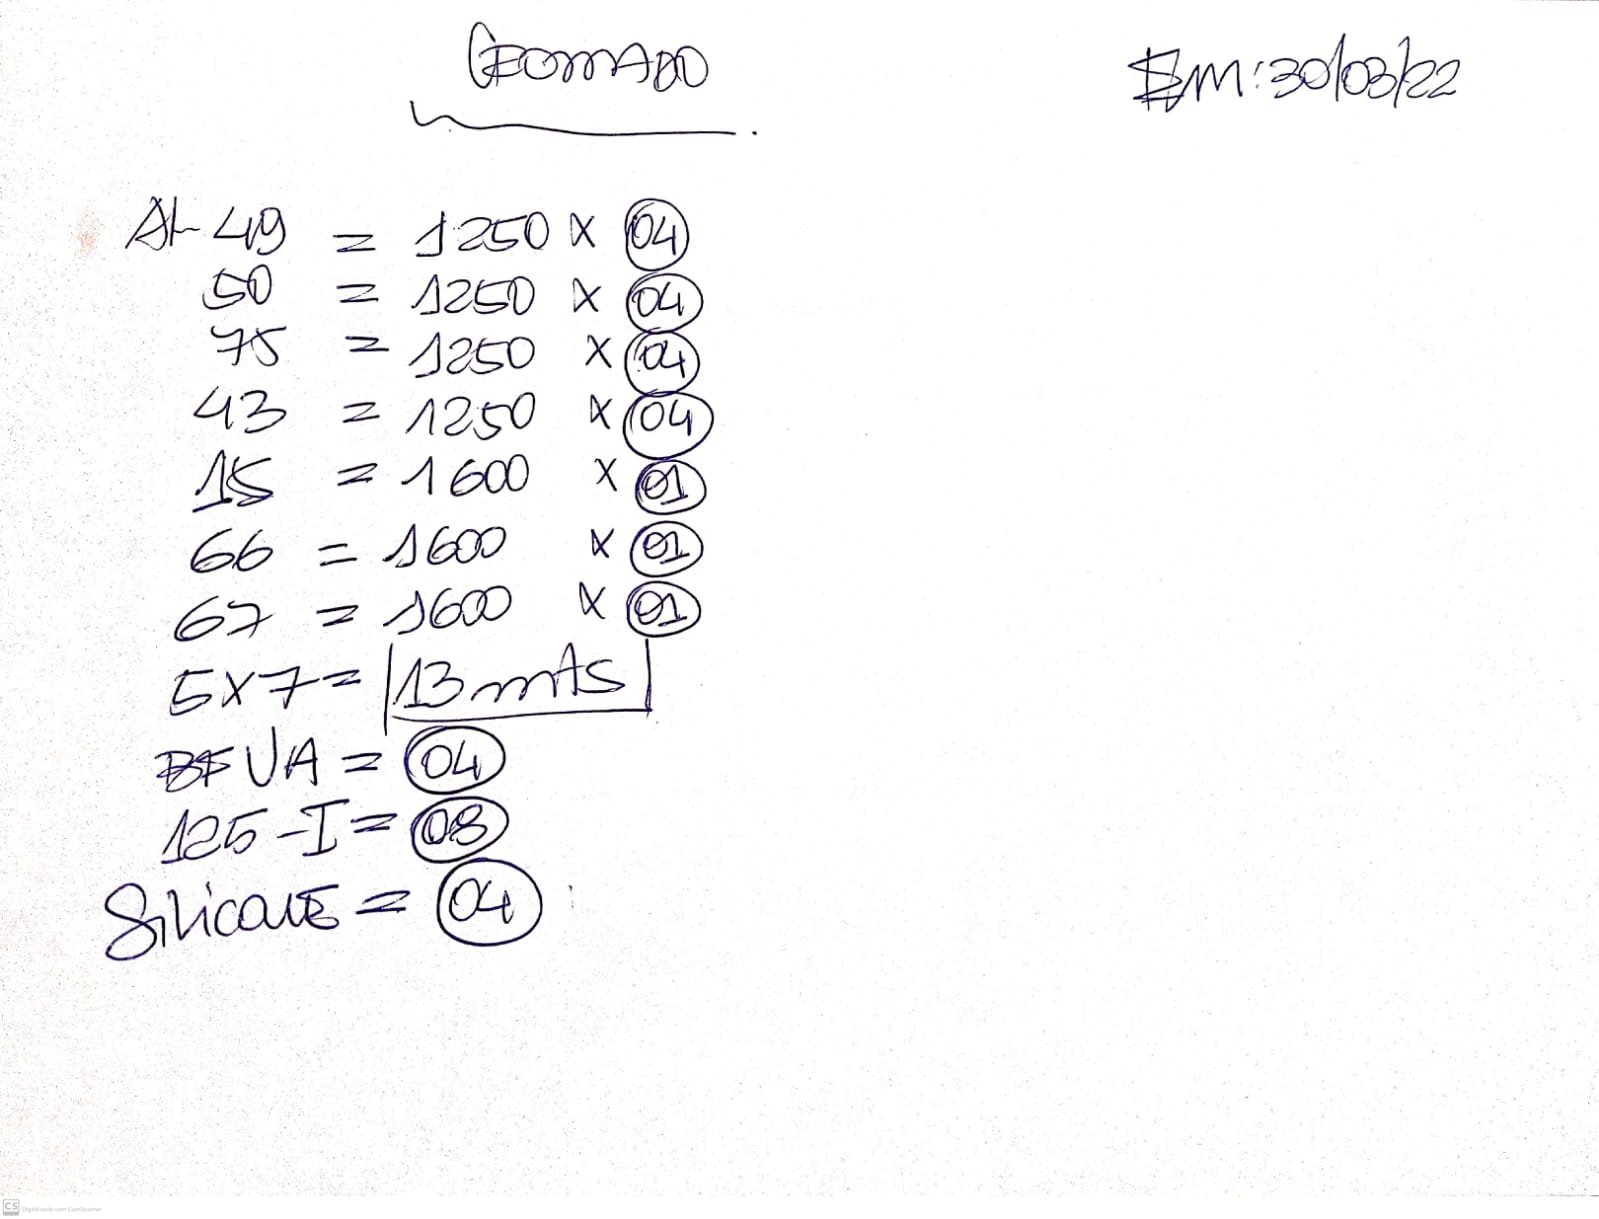 CROMADO
Em: 30/03/22
AL 49 = 1250 x 04
50 = 1250 x 04
75 = 1250 x 04
43 = 1250 x 04
15 = 1600 x 01
66 = 1600 x 01
67 = 1600 x 01
5x7 = 13 mts
UA = 04
125-I = 08
SiLiCONE = 04
CS Digitalizado com CamScanner